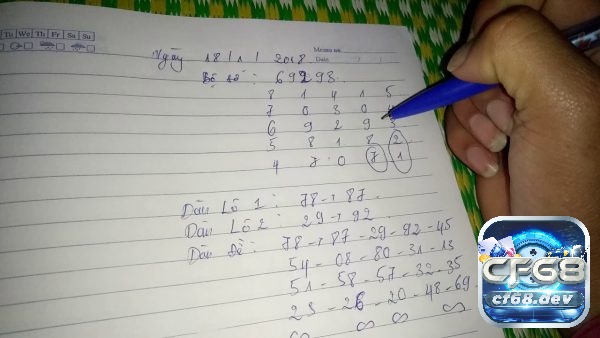 Tu We Th Fr Sa Su
Memo no.
Date / /
Ngày 18 / 1 / 2018
Bộ số : 699293
8 1 4 1 5
7 0 3 0 4
6 9 2 9 3
5 8 1 8 2
4 7 0 7 1
Dàn Lô 1 : 78 → 87.
Dàn Lô 2 : 29 → 92
Dàn Đề : 78 → 87 - 29 - 92 - 45
54 - 08 - 80 - 31 - 13
51 - 58 - 57 - 32 - 35
23 - 26 - 20 - 48 - 69
CF68
cf68.dev